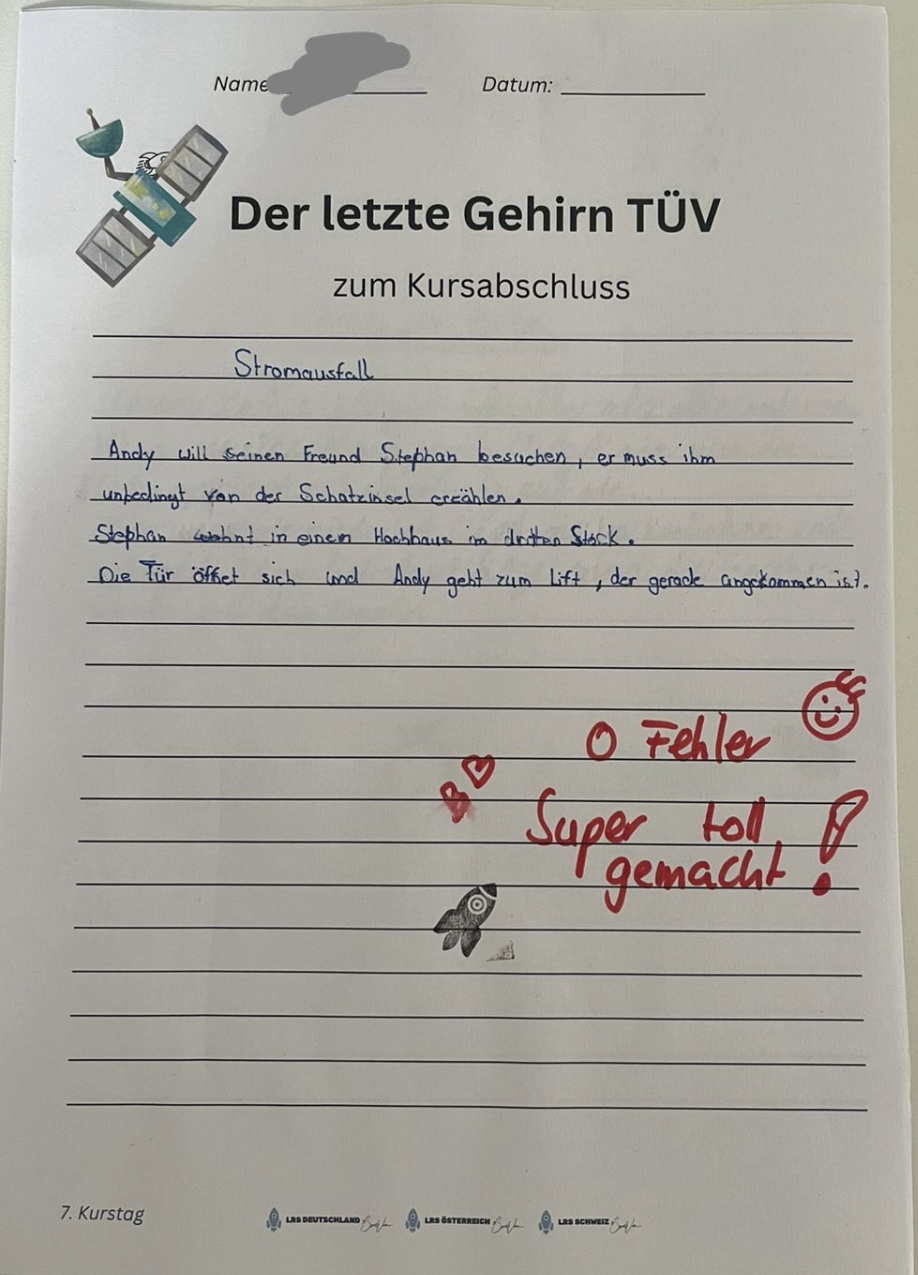 Name Datum:
Der letzte Gehirn TÜV
zum Kursabschluss
Stromausfall
Andy will seinen Freund Stephan besuchen, er muss ihm
unbedingt von der Schatzinsel erzählen.
Stephan wohnt in einem Hochhaus im dritten Stock.
Die Tür öffnet sich und Andy geht zum Lift, der gerade angekommen ist.
0 Fehler
Super toll
gemacht!
7. Kurstag
LRS DEUTSCHLAND LRS ÖSTERREICH LRS SCHWEIZ